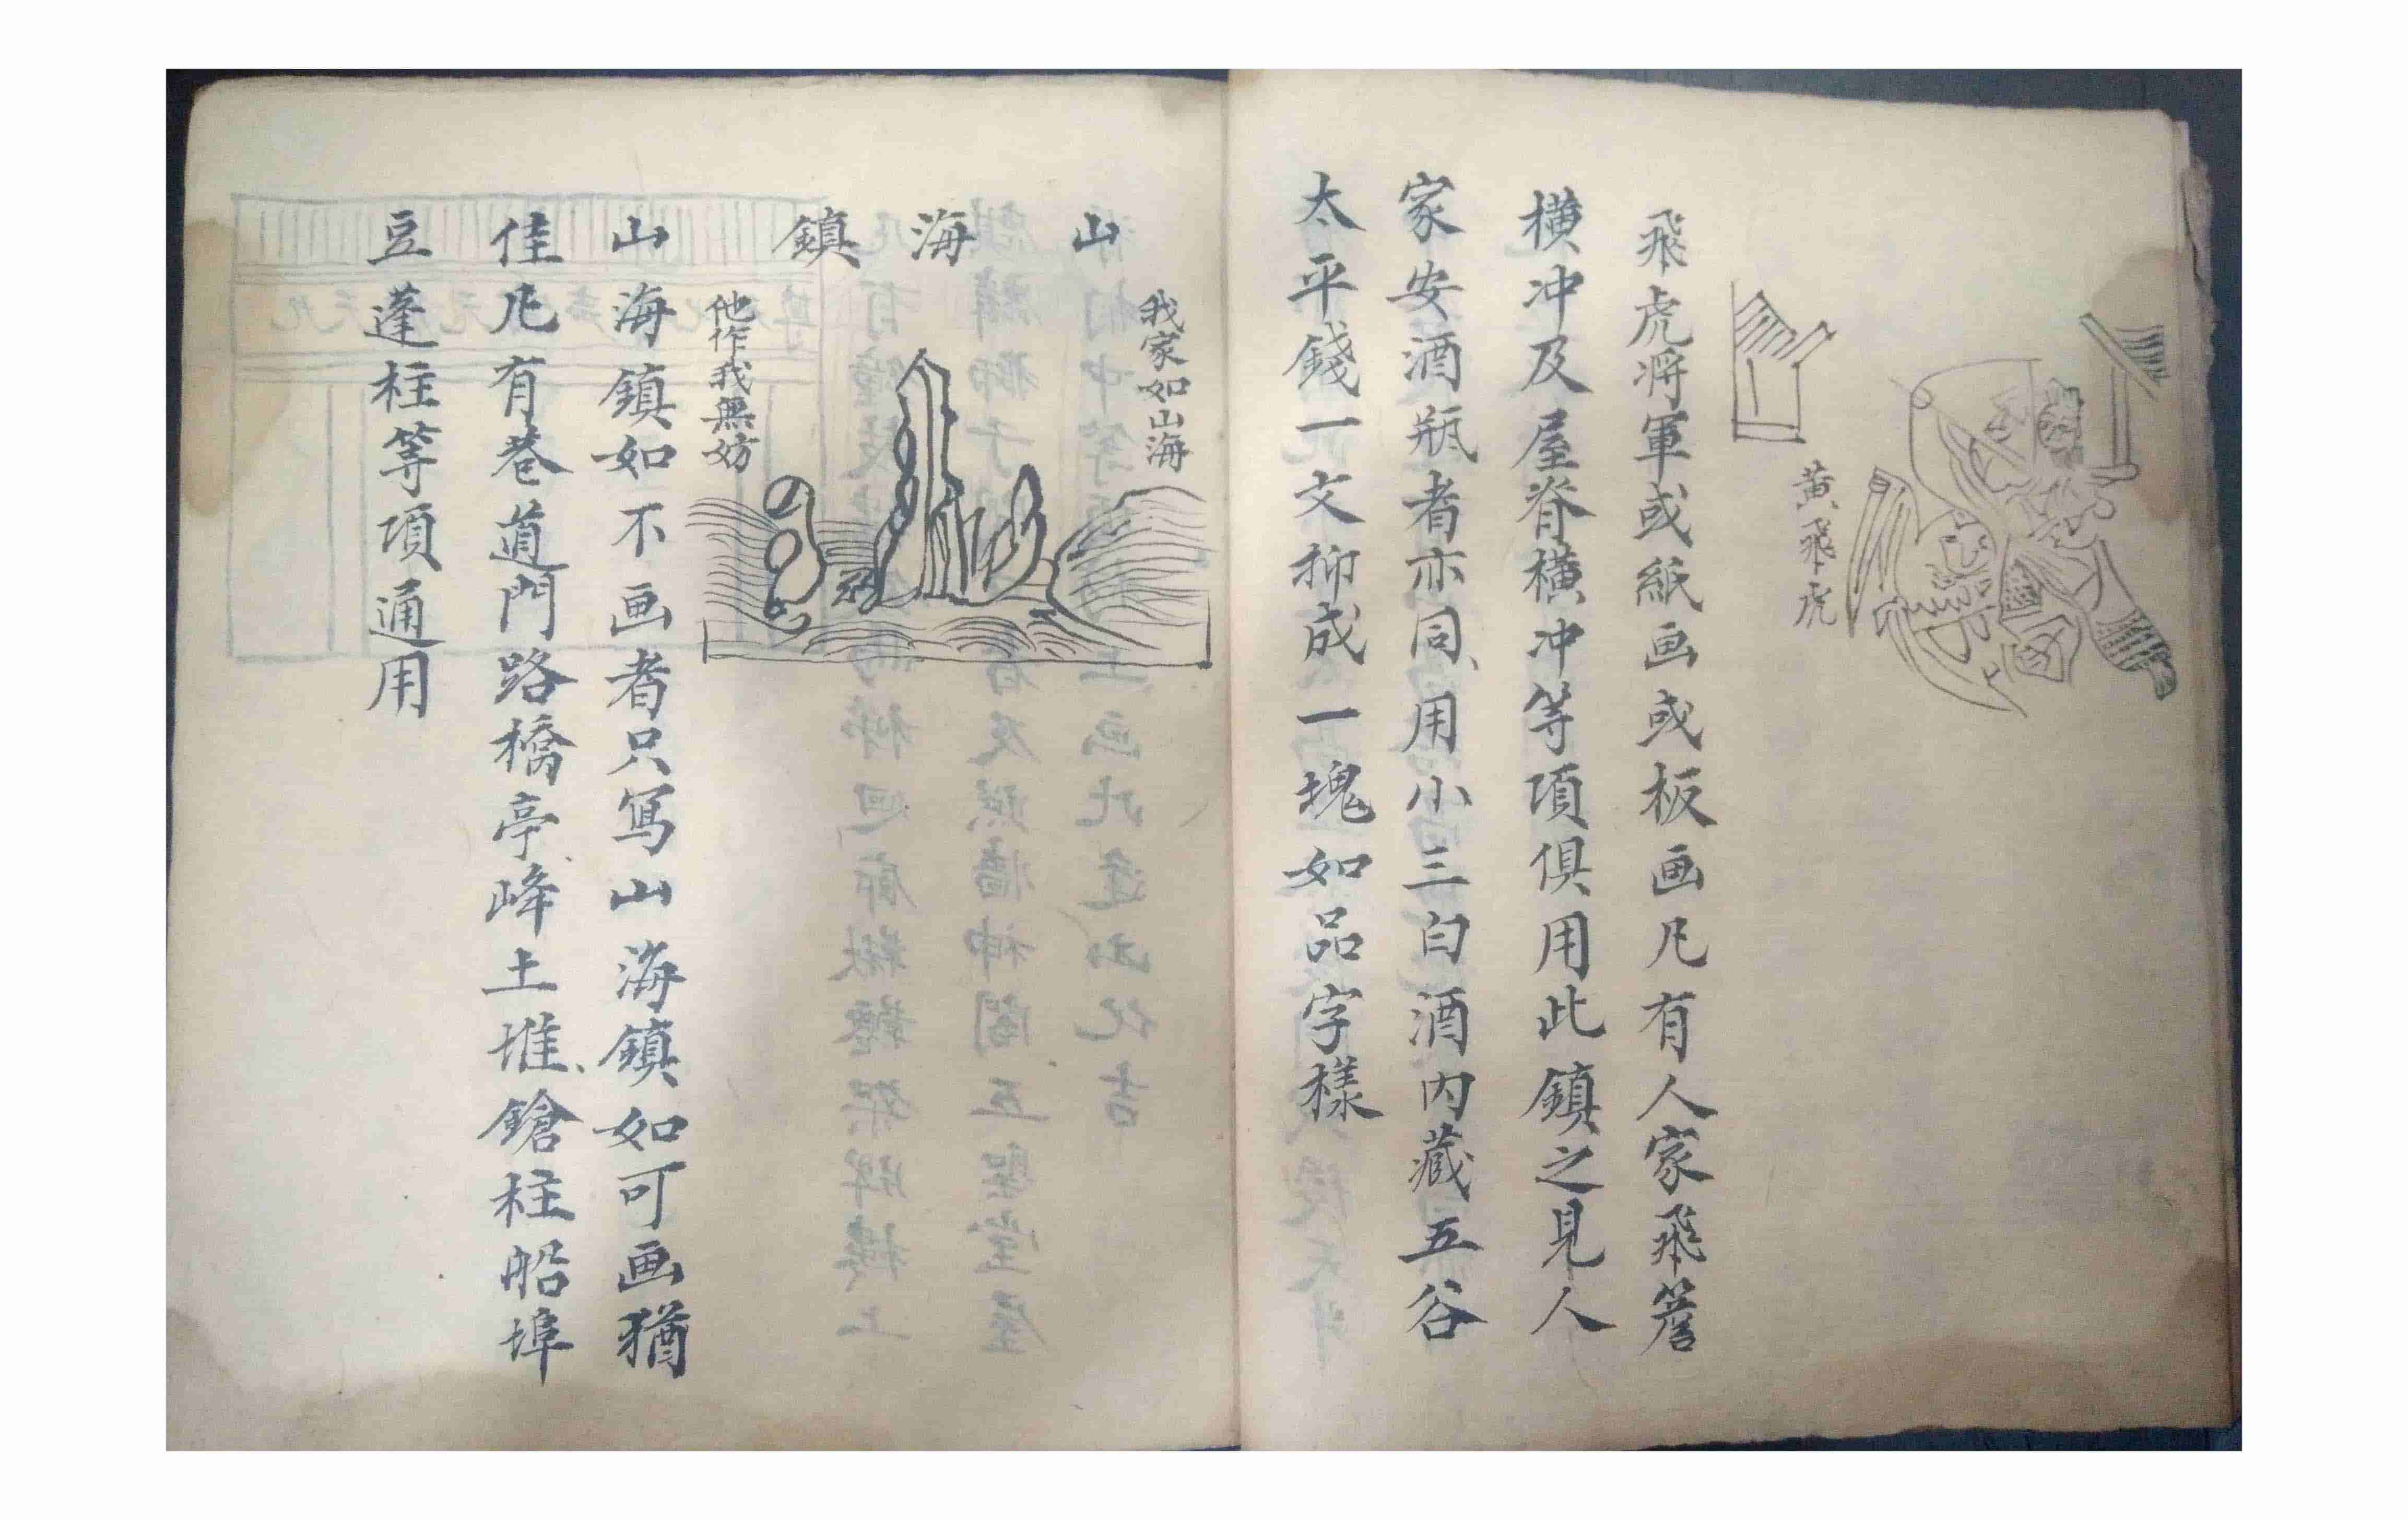 黄飛虎
飛虎将軍或紙画或板画凡有人家飛簷
横冲及屋脊横冲等項俱用此鎮之見人
家安酒瓶者亦同用小三白酒内藏五谷
太平錢一文抑成一塊如品字樣
山海鎮
我家如山海
他作我無妨
山海鎮如不画者只写山海鎮如可画猶
佳凡有巷道門路橋亭峰土堆鎗柱船埠
豆蓬柱等項通用